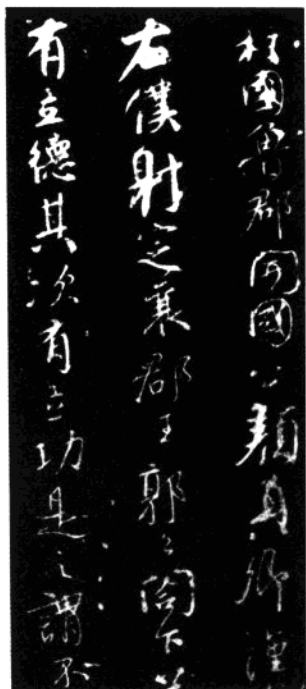 柱國魯郡開國公顏真卿謹
右僕射定襄郡王郭公閤下蓋
有立德其次有立功是之謂不